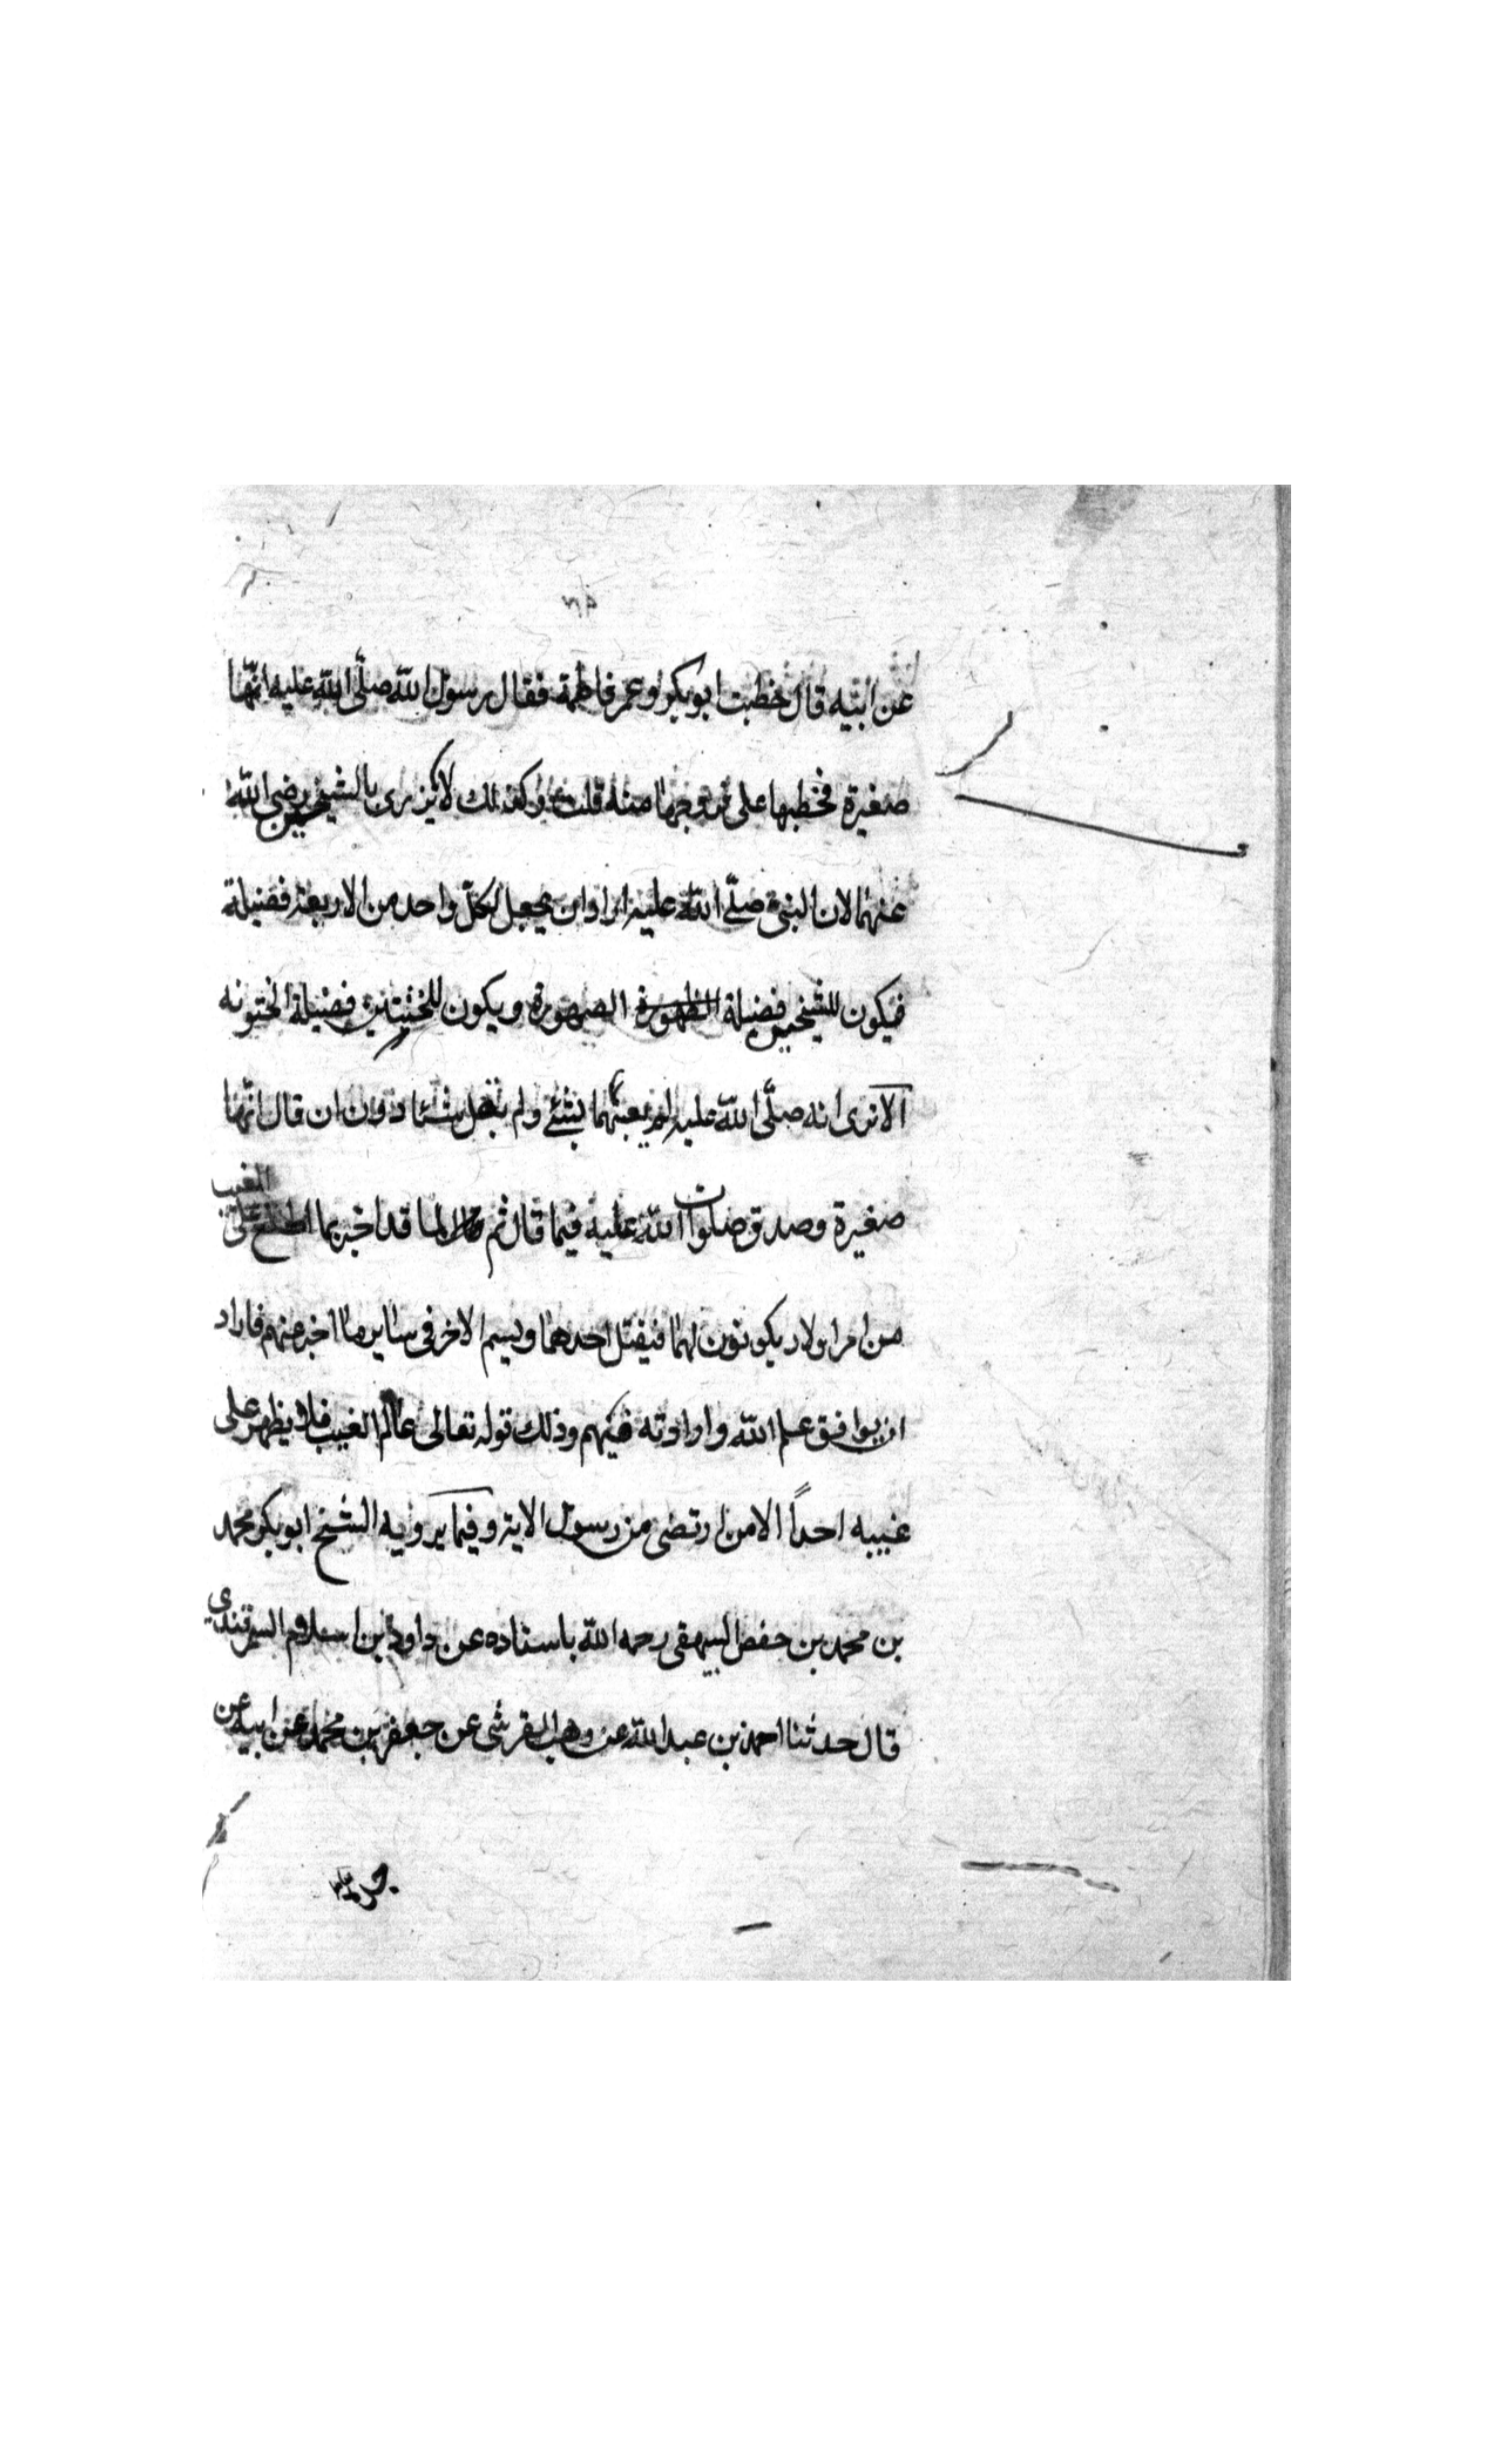 عن ابيه قال خطبت ابوبكر وعمر فاطمة فقال رسول الله صلّى الله عليه انّها
صغيرة فخطبها على فزوجها منه قلت وكذلك لا يزرى بالشيخين رضى الله
عنهما لان النبى صلّى الله عليه اراد ان يجعل لكلّ واحد من الاربعة فضيلة
فيكون للشيخين فضيلة الصهورة ويكون للختنين فضيلة الختونه
الا ترى انه صلّى الله عليه لم يعبهما بشئ ولم يقل شئا دون ان قال انّها
صغيرة وصدق صلوات الله عليه فيما قال ثم لما قد اخبر بما اطلع على الغيب
من امر اولاد يكونون لهما فيقتل احدهما ويسم الاخر فى ساير ما اخبر عنهم فاراد
ان يوافق علم الله وارادته فيهم وذلك قوله تعالى عالم الغيب فلا يظهر على
غيبه احداً الا من ارتضى من رسول الاية وفيما يرويه الشيخ ابو بكر محمد
بن محمد بن حفص البيهقى رحمه الله باسناده عن داود بن اسلام السمرقندى
قال حدثنا احمد بن عبد الله عن وهب القرشى عن جعفر بن محمد عن ابيه عن